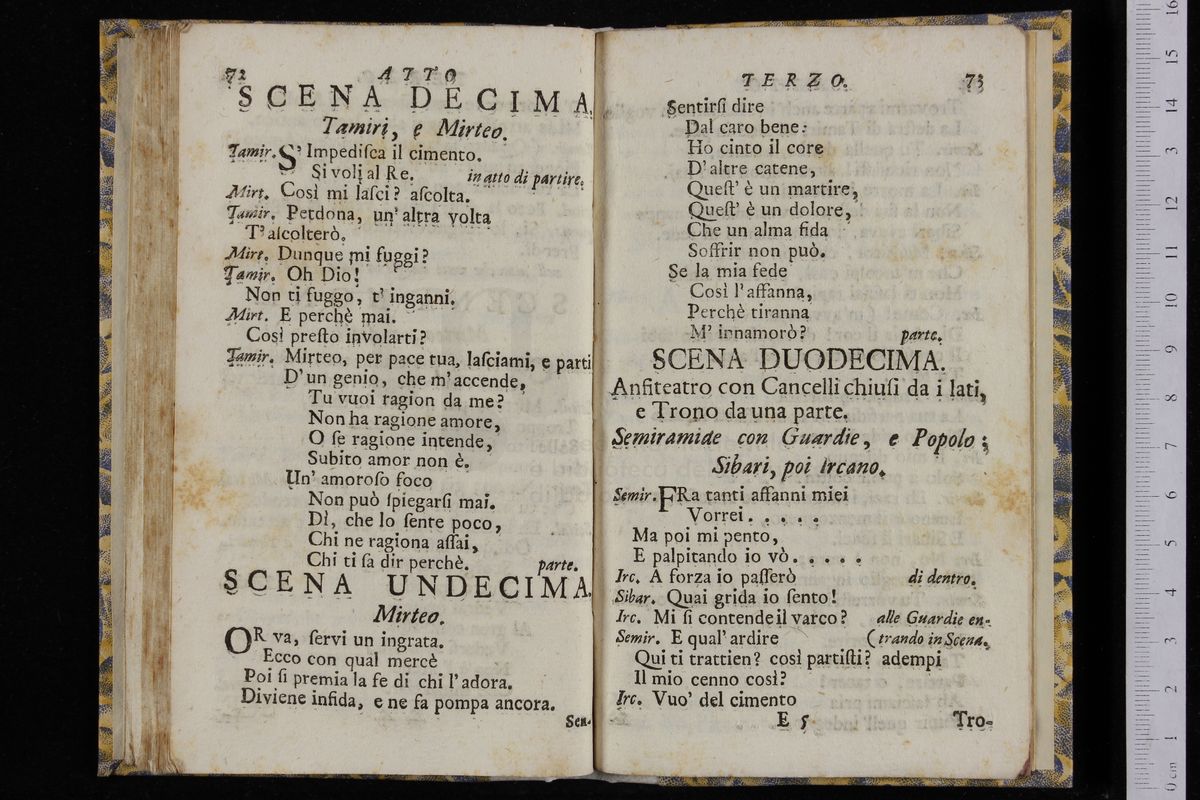 72 ATTO
SCENA DECIMA.
Tamiri, e Mirteo.
Tamir. S' Impediſca il cimento.
Si voli al Re. in atto di partire.
Mirt. Così mi laſci? aſcolta.
Tamir. Petdona, un' altra volta
T'aſcolterò.
Mirt. Dunque mi fuggi?
Tamir. Oh Dio!
Non ti fuggo, t' inganni.
Mirt. E perchè mai.
Così preſto involarti?
Tamir. Mirteo, per pace tua, laſciami, e parti
D'un genio, che m'accende,
Tu vuoi ragion da me?
Non ha ragione amore,
O ſe ragione intende,
Subito amor non è.
Un' amoroſo foco
Non può ſpiegarſi mai.
Dì, che lo ſente poco,
Chi ne ragiona aſſai,
Chi ti ſa dir perchè. parte.
SCENA UNDECIMA.
Mirteo.
OR va, ſervi un ingrata.
Ecco con qual mercè
Poi ſi premia la fe di chi l'adora.
Diviene infida, e ne fa pompa ancora.
Sen-
TERZO. 73
Sentirſi dire
Dal caro bene:
Ho cinto il core
D'altre catene,
Queſt' è un martire,
Queſt' è un dolore,
Che un alma fida
Soffrir non può.
Se la mia fede
Così l'affanna,
Perchè tiranna
M' innamorò? parte.
SCENA DUODECIMA.
Anfiteatro con Cancelli chiuſi da i lati,
e Trono da una parte.
Semiramide con Guardie, e Popolo;
Sibari, poi Ircano.
Semir. FRa tanti affanni miei
Vorrei. . . . .
Ma poi mi pento,
E palpitando io vò. . . . .
Irc. A forza io paſſerò di dentro.
Sibar. Quai grida io ſento!
Irc. Mi ſi contende il varco? alle Guardie en-
Semir. E qual' ardire (trando in Scena.
Qui ti trattien? così partiſti? adempi
Il mio cenno così?
Irc. Vuo' del cimento
E 5 Tro-
0 cm 1 2 3 4 5 6 7 8 9 10 11 12 13 14 15 16